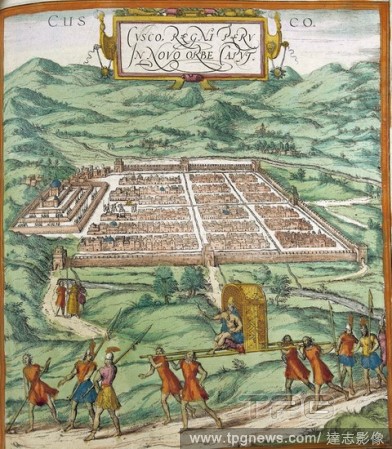 CUSCO.
CUSCO, REGNI PERV
IN NOVO ORBE CAPVT.
TPG
www.tpgnews.com/ 達志影像